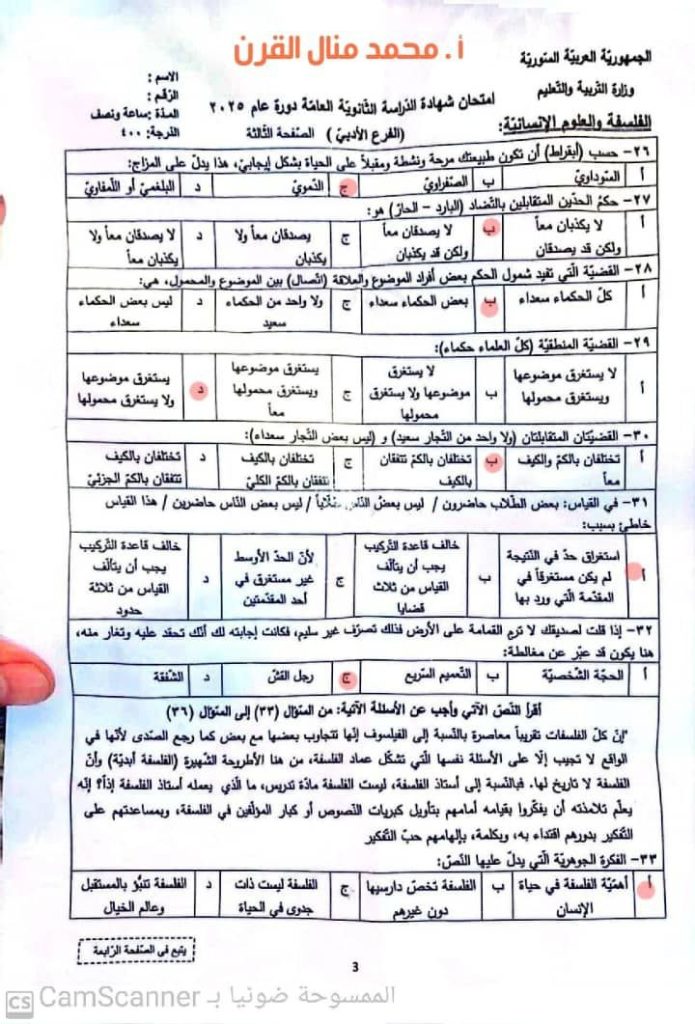 أ. محمد منال القرن
الجمهورية العربية السورية
وزارة التربية والتعليم
امتحان شهادة الدراسة الثانوية العامة دورة عام ٢٠٢٥
الفلسفة والعلوم الإنسانية:
(الفرع الأدبي) الصفحة الثالثة
الاسم :
الرقم :
المدة :ساعة ونصف
الدرجة: ٤٠٠
٢٦- حسب (أبقراط) أن تكون طبيعتك مرحة ونشطة ومقبلاً على الحياة بشكل إيجابي، هذا يدل على المزاج:
أ السوداوي ب الصفراوي ج الدموي د البلغمي أو اللمفاوي
٢٧- حكم الحدين المتقابلين بالتضاد (البارد - الحار) هو:
أ لا يكذبان معاً ولكن قد يصدقان ب لا يصدقان معاً ولكن قد يكذبان ج يصدقان معاً ولا يكذبان د لا يصدقان معاً ولا يكذبان معاً
٢٨- القضية التي تفيد شمول الحكم بعض أفراد الموضوع والعلاقة (اتصال) بين الموضوع والمحمول، هي:
أ كل الحكماء سعداء ب بعض الحكماء سعداء ج ولا واحد من الحكماء سعيد د ليس بعض الحكماء سعداء
٢٩- القضية المنطقية (كل العلماء حكماء):
أ لا يستغرق موضوعها ويستغرق محمولها ب لا يستغرق موضوعها ولا يستغرق محمولها ج يستغرق موضوعها ويستغرق محمولها معاً د يستغرق موضوعها ولا يستغرق محمولها
٣٠- القضيتان المتقابلتان (ولا واحد من التجار سعيد) و (ليس بعض التجار سعداء):
أ تختلفان بالكم والكيف معاً ب تختلفان بالكم تتفقان بالكيف ج تختلفان بالكيف تتفقان بالكم الكلي د تختلفان بالكيف تتفقان بالكم الجزئي
٣١- في القياس: بعض الطلاب حاضرون / ليس بعض الناس طلاباً / ليس بعض الناس حاضرين / هذا القياس
خاطئ بسبب:
أ استغراق حد في النتيجة لم يكن مستغرقاً في المقدمة التي ورد بها ب خالف قاعدة التركيب يجب أن يتألف القياس من ثلاث قضايا ج لأن الحد الأوسط غير مستغرق في أحد المقدمتين د خالف قاعدة التركيب يجب أن يتألف القياس من ثلاثة حدود
٣٢- إذا قلت لصديقك لا ترمِ القمامة على الأرض فذلك تصرف غير سليم، فكانت إجابته لك أنك تحقد عليه وتغار منه،
هنا يكون قد عبّر عن مغالطة:
أ الحجة الشخصية ب التعميم السريع ج رجل القش د الشفقة
اقرأ النص الآتي وأجب عن الأسئلة الآتية: من السؤال (٣٣) إلى السؤال (٣٦)
"إن كل الفلسفات تقريباً معاصرة بالنسبة إلى الفيلسوف إنها تتجاوب بعضها مع بعض كما رجع الصدى لأنها في
الواقع لا تجيب إلا على الأسئلة نفسها التي تشكل عماد الفلسفة، من هنا الأطروحة الشهيرة (الفلسفة أبدية) وأن
الفلسفة لا تاريخ لها. فبالنسبة إلى أستاذ الفلسفة، ليست الفلسفة مادة تدريس، ما الذي يعمله أستاذ الفلسفة إذاً؟ إنه
يعلم تلامذته أن يفكروا بقيامه أمامهم بتأويل كبريات النصوص أو كبار المؤلفين في الفلسفة، وبمساعدتهم على
التفكير بدورهم اقتداء به، وبكلمة، بإلهامهم حب التفكير
٣٣- الفكرة الجوهرية التي يدل عليها النص:
أ أهمية الفلسفة في حياة الإنسان ب الفلسفة تخص دارسيها دون غيرهم ج الفلسفة ليست ذات جدوى في الحياة د الفلسفة تتنبؤ بالمستقبل وعالم الخيال
يتبع في الصفحة الرابعة
3
CS الممسوحة ضوئيا بـ CamScanner